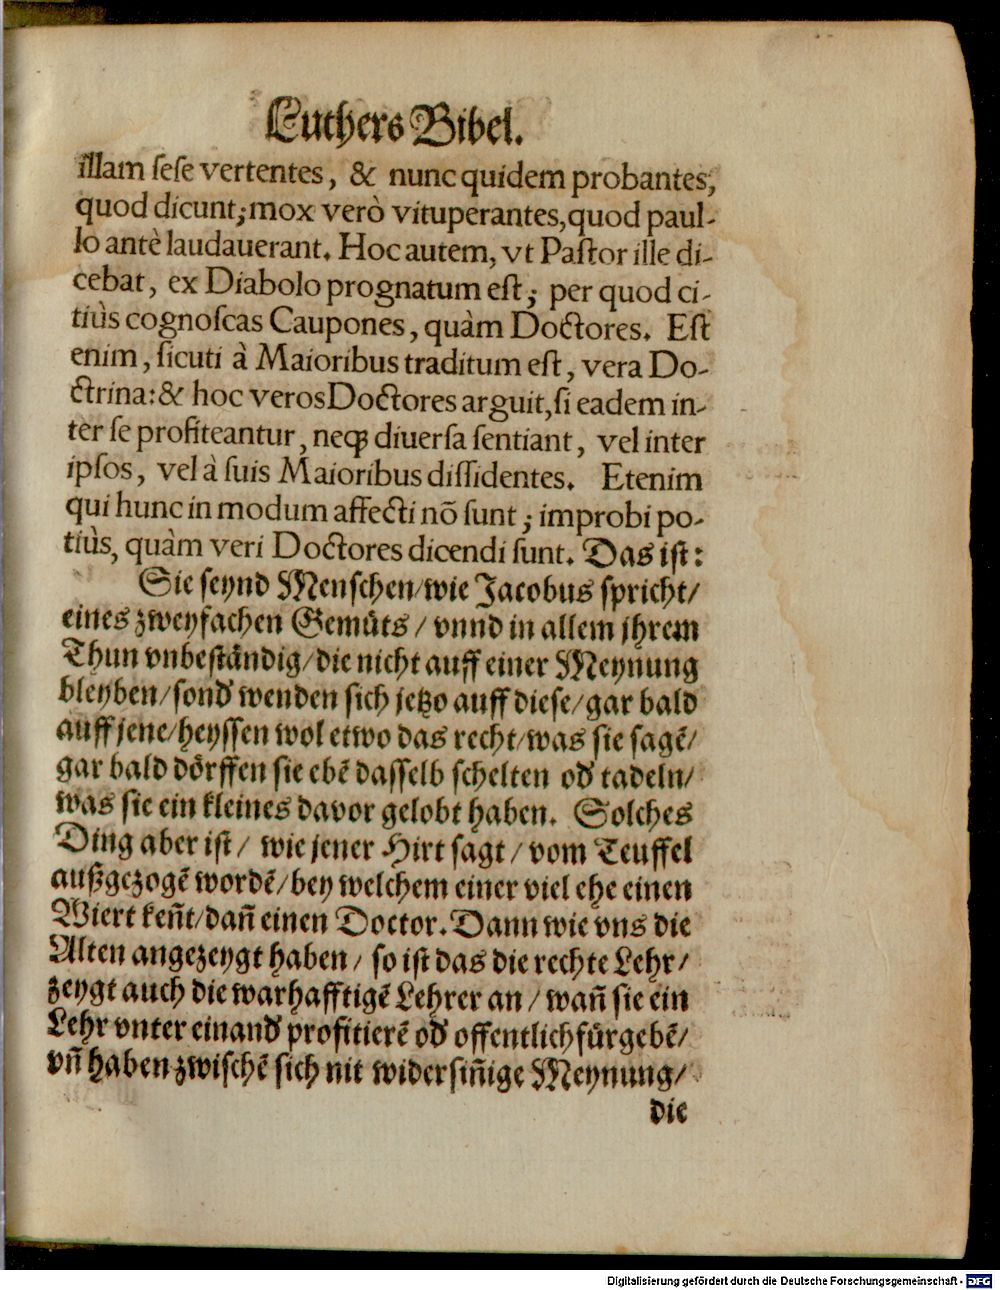 Luthers Bibel.
illam ſeſe vertentes, & nunc quidem probantes,
quod dicunt; mox verò vituperantes, quod paul-
lo antè laudauerant. Hoc autem, vt Paſtor ille di-
cebat, ex Diabolo prognatum eſt; per quod ci-
tiùs cognoſcas Caupones, quàm Doctores. Eſt
enim, ſicuti à Maioribus traditum eſt, vera Do-
ctrina: & hoc veros Doctores arguit, ſi eadem in-
ter ſe profiteantur, neqꝫ diuerſa ſentiant, vel inter
ipſos, vel à ſuis Maioribus diſſidentes. Etenim
qui hunc in modum affecti nō ſunt; improbi po-
tiùs, quàm veri Doctores dicendi ſunt. Das iſt:
Sie ſeynd Menſchen/wie Jacobus ſpricht/
eines zweyfachen Gemüts/ vnnd in allem jhrem
Thun vnbeſtändig/die nicht auff einer Meynung
bleyben/ſond wenden ſich jetzo auff dieſe/gar bald
auff jene/heyſſen wol etwo das recht/was ſie ſagē/
gar bald dörffen ſie ebē daſſelb ſchelten od tadeln/
was ſie ein kleines davor gelobt haben. Solches
Ding aber iſt/ wie jener Hirt ſagt/ vom Teuffel
außgezogē wordē/bey welchem einer viel ehe einen
Wiert keñt/dañ einen Doctor. Dann wie vns die
Alten angezeygt haben/ ſo iſt das die rechte Lehr/
zeygt auch die warhafftigē Lehrer an/ wañ ſie ein
Lehr vnter einand profitierē od offentlich fürgebē/
vñ haben zwiſchē ſich nit widerſiñige Meynung/
die
Digitalisierung gefördert durch die Deutsche Forschungsgemeinschaft - DFG